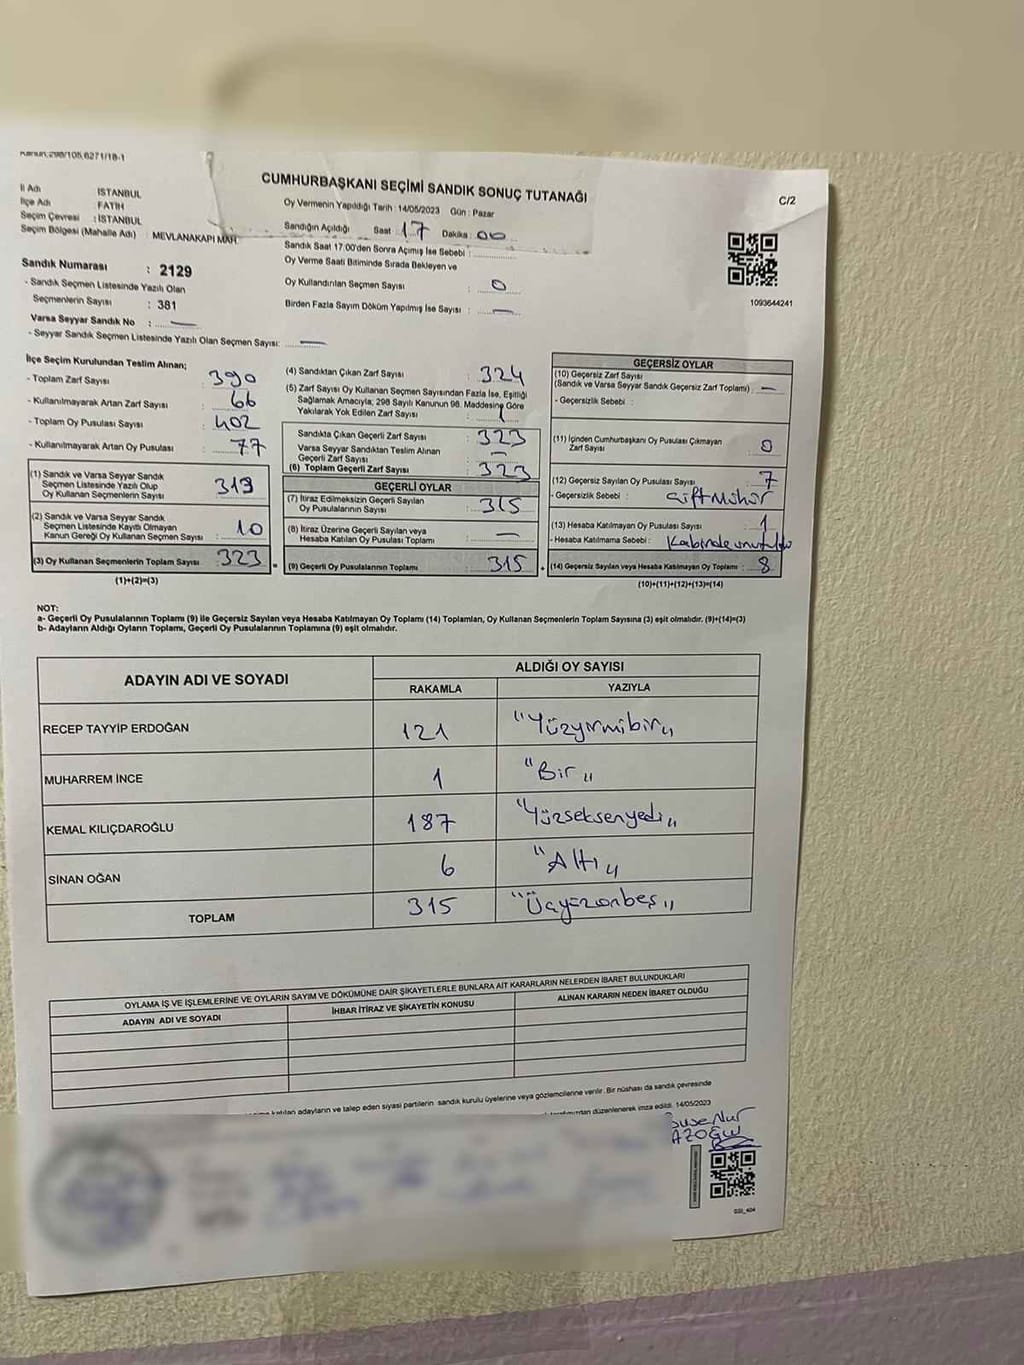 Kanun;298/105,6271/18-1
CUMHURBAŞKANI SEÇİMİ SANDIK SONUÇ TUTANAĞI
C/2
İl Adı İSTANBUL
İlçe Adı FATİH
Seçim Çevresi : İSTANBUL
Seçim Bölgesi (Mahalle Adı) : MEVLANAKAPI MAH.
Oy Vermenin Yapıldığı Tarih : 14/05/2023 Gün : Pazar
Sandığın Açıldığı Saat : 17 Dakika : 00
Sandık Saat 17:00'den Sonra Açımış İse Sebebi :
Oy Verme Saati Bitiminde Sırada Bekleyen ve
Oy Kullandırılan Seçmen Sayısı : 0
Birden Fazla Sayım Döküm Yapılmış İse Sayısı : —
1093644241
Sandık Numarası : 2129
- Sandık Seçmen Listesinde Yazılı Olan
Seçmenlerin Sayısı : 381
Varsa Seyyar Sandık No : —
- Seyyar Sandık Seçmen Listesinde Yazılı Olan Seçmen Sayısı: —
İlçe Seçim Kurulundan Teslim Alınan;
- Toplam Zarf Sayısı : 390
- Kullanılmayarak Artan Zarf Sayısı : 66
- Toplam Oy Pusulası Sayısı : 402
- Kullanılmayarak Artan Oy Pusulası : 77
(1) Sandık ve Varsa Seyyar Sandık
Seçmen Listesinde Yazılı Olup
Oy Kullanan Seçmenlerin Sayısı : 313
(2) Sandık ve Varsa Seyyar Sandık
Seçmen Listesinde Kayıtlı Olmayan
Kanun Gereği Oy Kullanan Seçmen Sayısı : 10
(3) Oy Kullanan Seçmenlerin Toplam Sayısı : 323
(1)+(2)=(3)
(4) Sandıktan Çıkan Zarf Sayısı : 324
(5) Zarf Sayısı Oy Kullanan Seçmen Sayısından Fazla İse, Eşitliği
Sağlamak Amacıyla; 298 Sayılı Kanunun 98. Maddesine Göre
Yakılarak Yok Edilen Zarf Sayısı : 1
Sandıkta Çıkan Geçerli Zarf Sayısı : 323
Varsa Seyyar Sandıktan Teslim Alınan
Geçerli Zarf Sayısı : —
(6) Toplam Geçerli Zarf Sayısı : 323
GEÇERLİ OYLAR
(7) İtiraz Edilmeksizin Geçerli Sayılan
Oy Pusulalarının Sayısı : 315
(8) İtiraz Üzerine Geçerli Sayılan veya
Hesaba Katılan Oy Pusulası Toplamı : —
(9) Geçerli Oy Pusulalarının Toplamı : 315
GEÇERSİZ OYLAR
(10) Geçersiz Zarf Sayısı
(Sandık ve Varsa Seyyar Sandık Geçersiz Zarf Toplamı) : —
- Geçersizlik Sebebi :
(11) İçinden Cumhurbaşkanı Oy Pusulası Çıkmayan
Zarf Sayısı : 0
(12) Geçersiz Sayılan Oy Pusulası Sayısı : 7
- Geçersizlik Sebebi : Çift Mühür
(13) Hesaba Katılmayan Oy Pusulası Sayısı : 1
- Hesaba Katılmama Sebebi : Kabinde unutuldu
(14) Geçersiz Sayılan veya Hesaba Katılmayan Oy Toplamı : 8
(10)+(11)+(12)+(13)=(14)
NOT:
a- Geçerli Oy Pusulalarının Toplamı (9) ile Geçersiz Sayılan veya Hesaba Katılmayan Oy Toplamı (14) Toplamları, Oy Kullanan Seçmenlerin Toplam Sayısına (3) eşit olmalıdır. (9)+(14)=(3)
b- Adayların Aldığı Oyların Toplamı, Geçerli Oy Pusulalarının Toplamına (9) eşit olmalıdır.
ADAYIN ADI VE SOYADI ALDIĞI OY SAYISI
RAKAMLA YAZIYLA
RECEP TAYYİP ERDOĞAN 121 "Yüzyirmibir"
MUHARREM İNCE 1 "Bir"
KEMAL KILIÇDAROĞLU 187 "Yüzseksenyedi"
SİNAN OĞAN 6 "Altı"
TOPLAM 315 "Üçyüzonbeş"
OYLAMA İŞ VE İŞLEMLERİNE VE OYLARIN SAYIM VE DÖKÜMÜNE DAİR ŞİKAYETLERLE BUNLARA AİT KARARLARIN NELERDEN İBARET BULUNDUKLARI
ADAYIN ADI VE SOYADI İHBAR İTİRAZ VE ŞİKAYETİN KONUSU ALINAN KARARIN NEDEN İBARET OLDUĞU
katılan adayların ve talep eden siyasi partilerin sandık kurulu üyelerine veya gözlemcilerine verilir. Bir nüshası da sandık çevresinde
düzenlenerek imza edildi. 14/05/2023
Nur